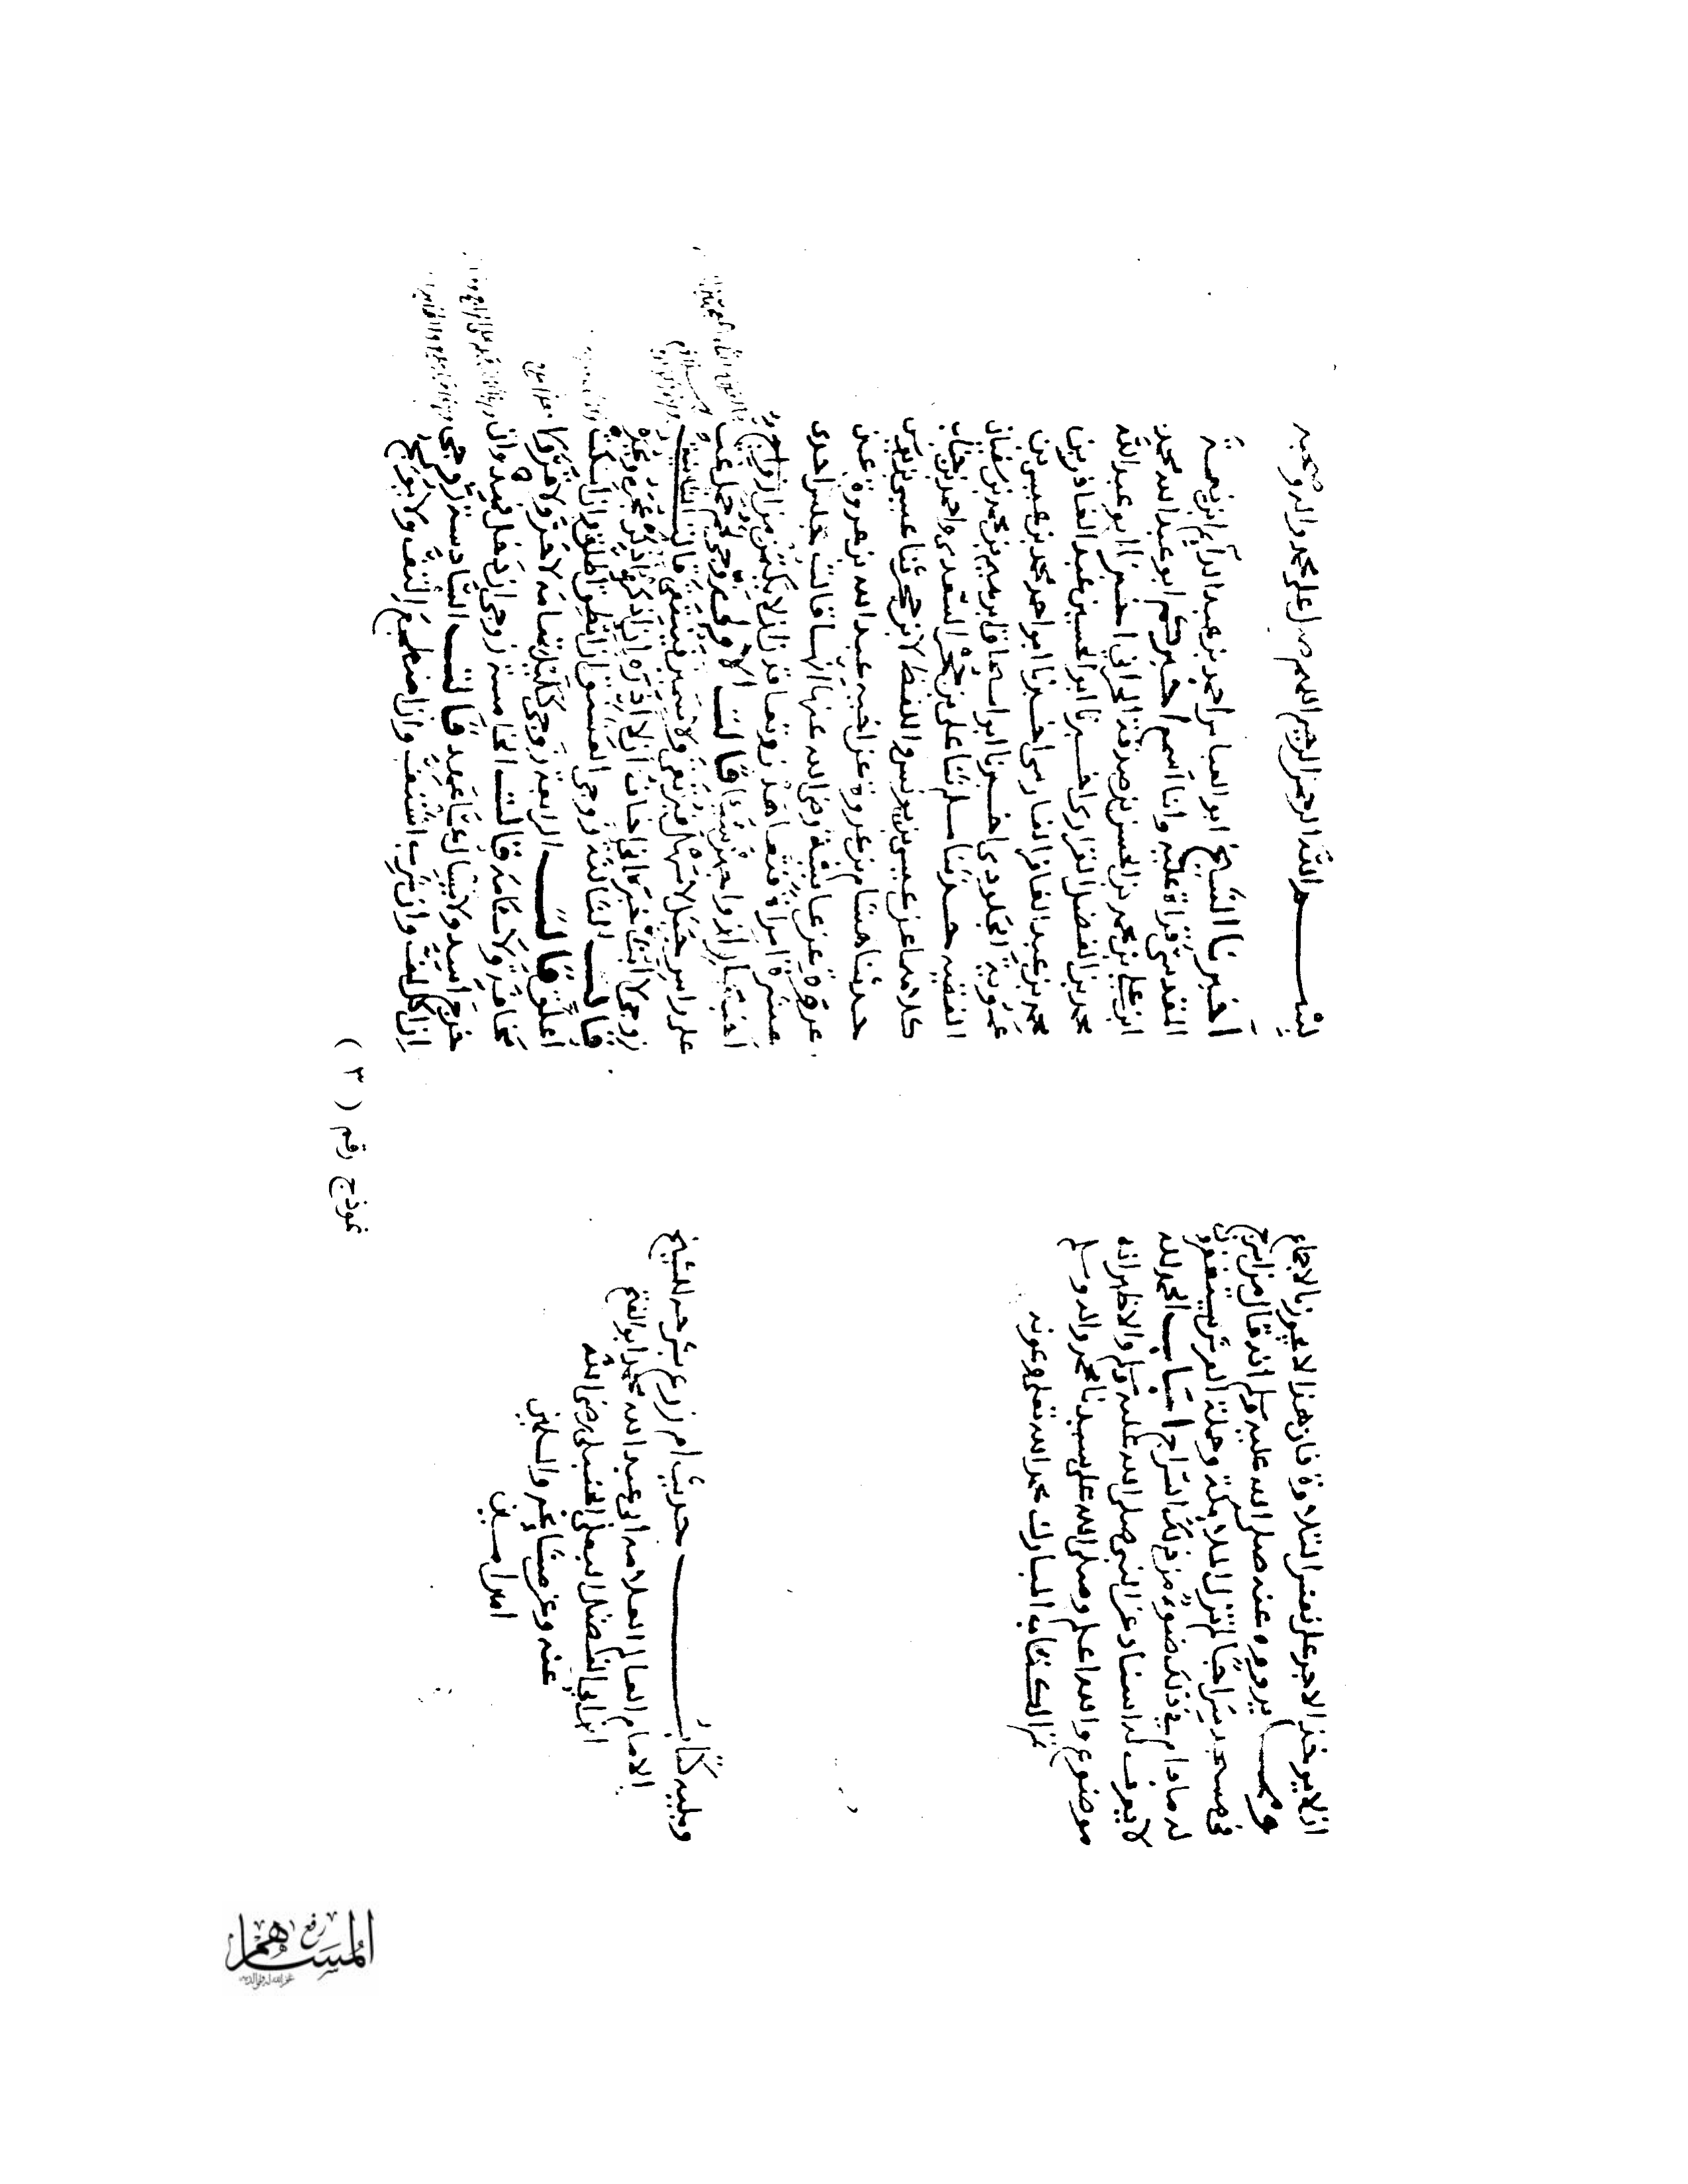 ان لا يوخذ الاجر على نفس التلاوة فان هذا لا يجوز بالاجماع
يروونه عنه صلى الله عليه وسلم انه قال من اسرج
في مسجد سراجا لم تزل الملائكة وحملة العرش يستغفرون
له ما دام في ذلك ضوء من ذلك السراج اجاب الحمد لله
لا يعرف له اسناد عن النبي صلى الله عليه وسلم والاظهر انه
موضوع والله اعلم وصلى الله على سيدنا محمد واله وسلم
تم الكتاب المبارك بحمد الله تعلى وعونه
ويليه كتاب حديث ام زرع شرحه للشيخ
الامام العالم العلامه ابي عبد الله محمد ابو الفتح
ابن ابي الفضل البعلي الحنبلي رضي الله
عنه وعن مشايخه والمسلمين
امين امين
بسم الله الرحمن الرحيم اللهم صل على محمد واله وصحبه
اخبرنا الشيخ ابو العباس احمد بن عبد الدايم بن نعمة
المقدسي قراة عليه وانا اسمع اخبركم ابو عبد الله محمد
ابن علي بن محمد بن الحسن بن صدقة الحراني اخبرنا ابو عبد الله
محمد بن الفضل الفزاري اخبرنا ابو الحسين عبد الغافر بن
محمد بن عبد الغافر الفارسي اخبرنا ابو احمد محمد بن عيسى بن
عمرويه الجلودي اخبرنا ابو اسحاق ابرهيم بن محمد بن سفيان
الفقيه حدثنا مسلم ثنا علي بن حجر السعدي واحمد بن جناب
كلاهما عن عيسى بن يونس واللفظ لابن حجر ثنا عيسى بن يونس
حدثنا هشام بن عروة عن اخيه عبد الله بن عروة عن
عروة عن عايشة رضي الله عنها انها قالت جلس احدى
عشرة امراة فتعاهدن وتعاقدن ان لا يكتمن من
اخبار ازواجهن شيئا قالت الاولى زوجي لحم جمل غث
على راس جبل لا سهل فيرتقى ولا سمين فينتقى قالت الثانية
زوجي لا ابث خبره اني اخاف ان لا اذره ان اذكره اذكر عجره وبجره
قالت الثالثة زوجي العشنق ان انطق اطلق وان اسكت
اعلق قالت الرابعة زوجي كليل تهامه لا حر ولا قر ولا
مخافة ولا سآمة قالت الخامسة زوجي ان دخل فهد وان
خرج اسد ولا يسال عما عهد قالت السادسة زوجي
ان اكل لف وان شرب اشتف وان اضطجع التف ولا يولج
نموذج رقم ( ٣ )
رفع
المساهم
غفر الله له ولوالديه